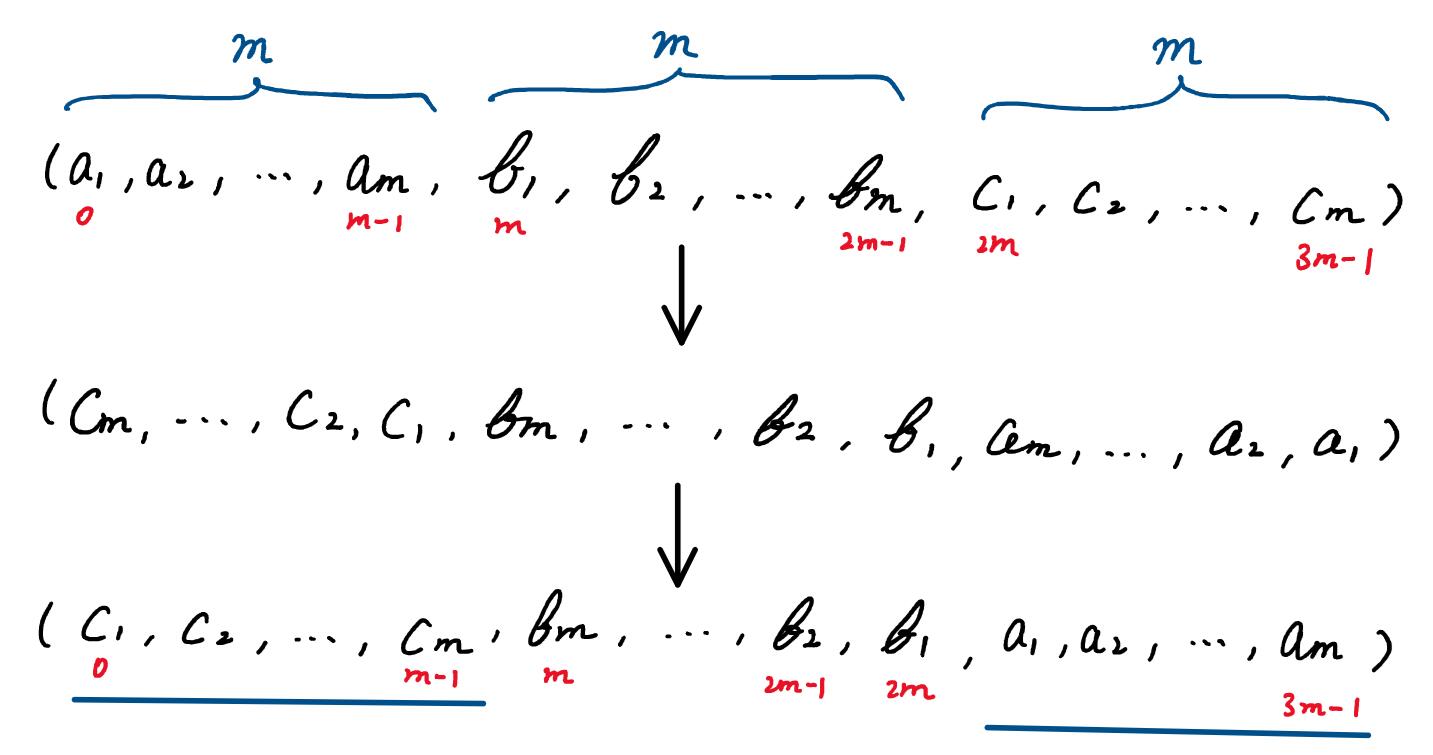 m m m
(a₁, a₂, ..., aₘ, b₁, b₂, ..., bₘ, c₁, c₂, ..., cₘ)
0 m-1 m 2m-1 2m 3m-1
(cₘ, ..., c₂, c₁, bₘ, ..., b₂, b₁, aₘ, ..., a₂, a₁)
(c₁, c₂, ..., cₘ, bₘ, ..., b₂, b₁, a₁, a₂, ..., aₘ)
0 m-1 m 2m-1 2m 3m-1